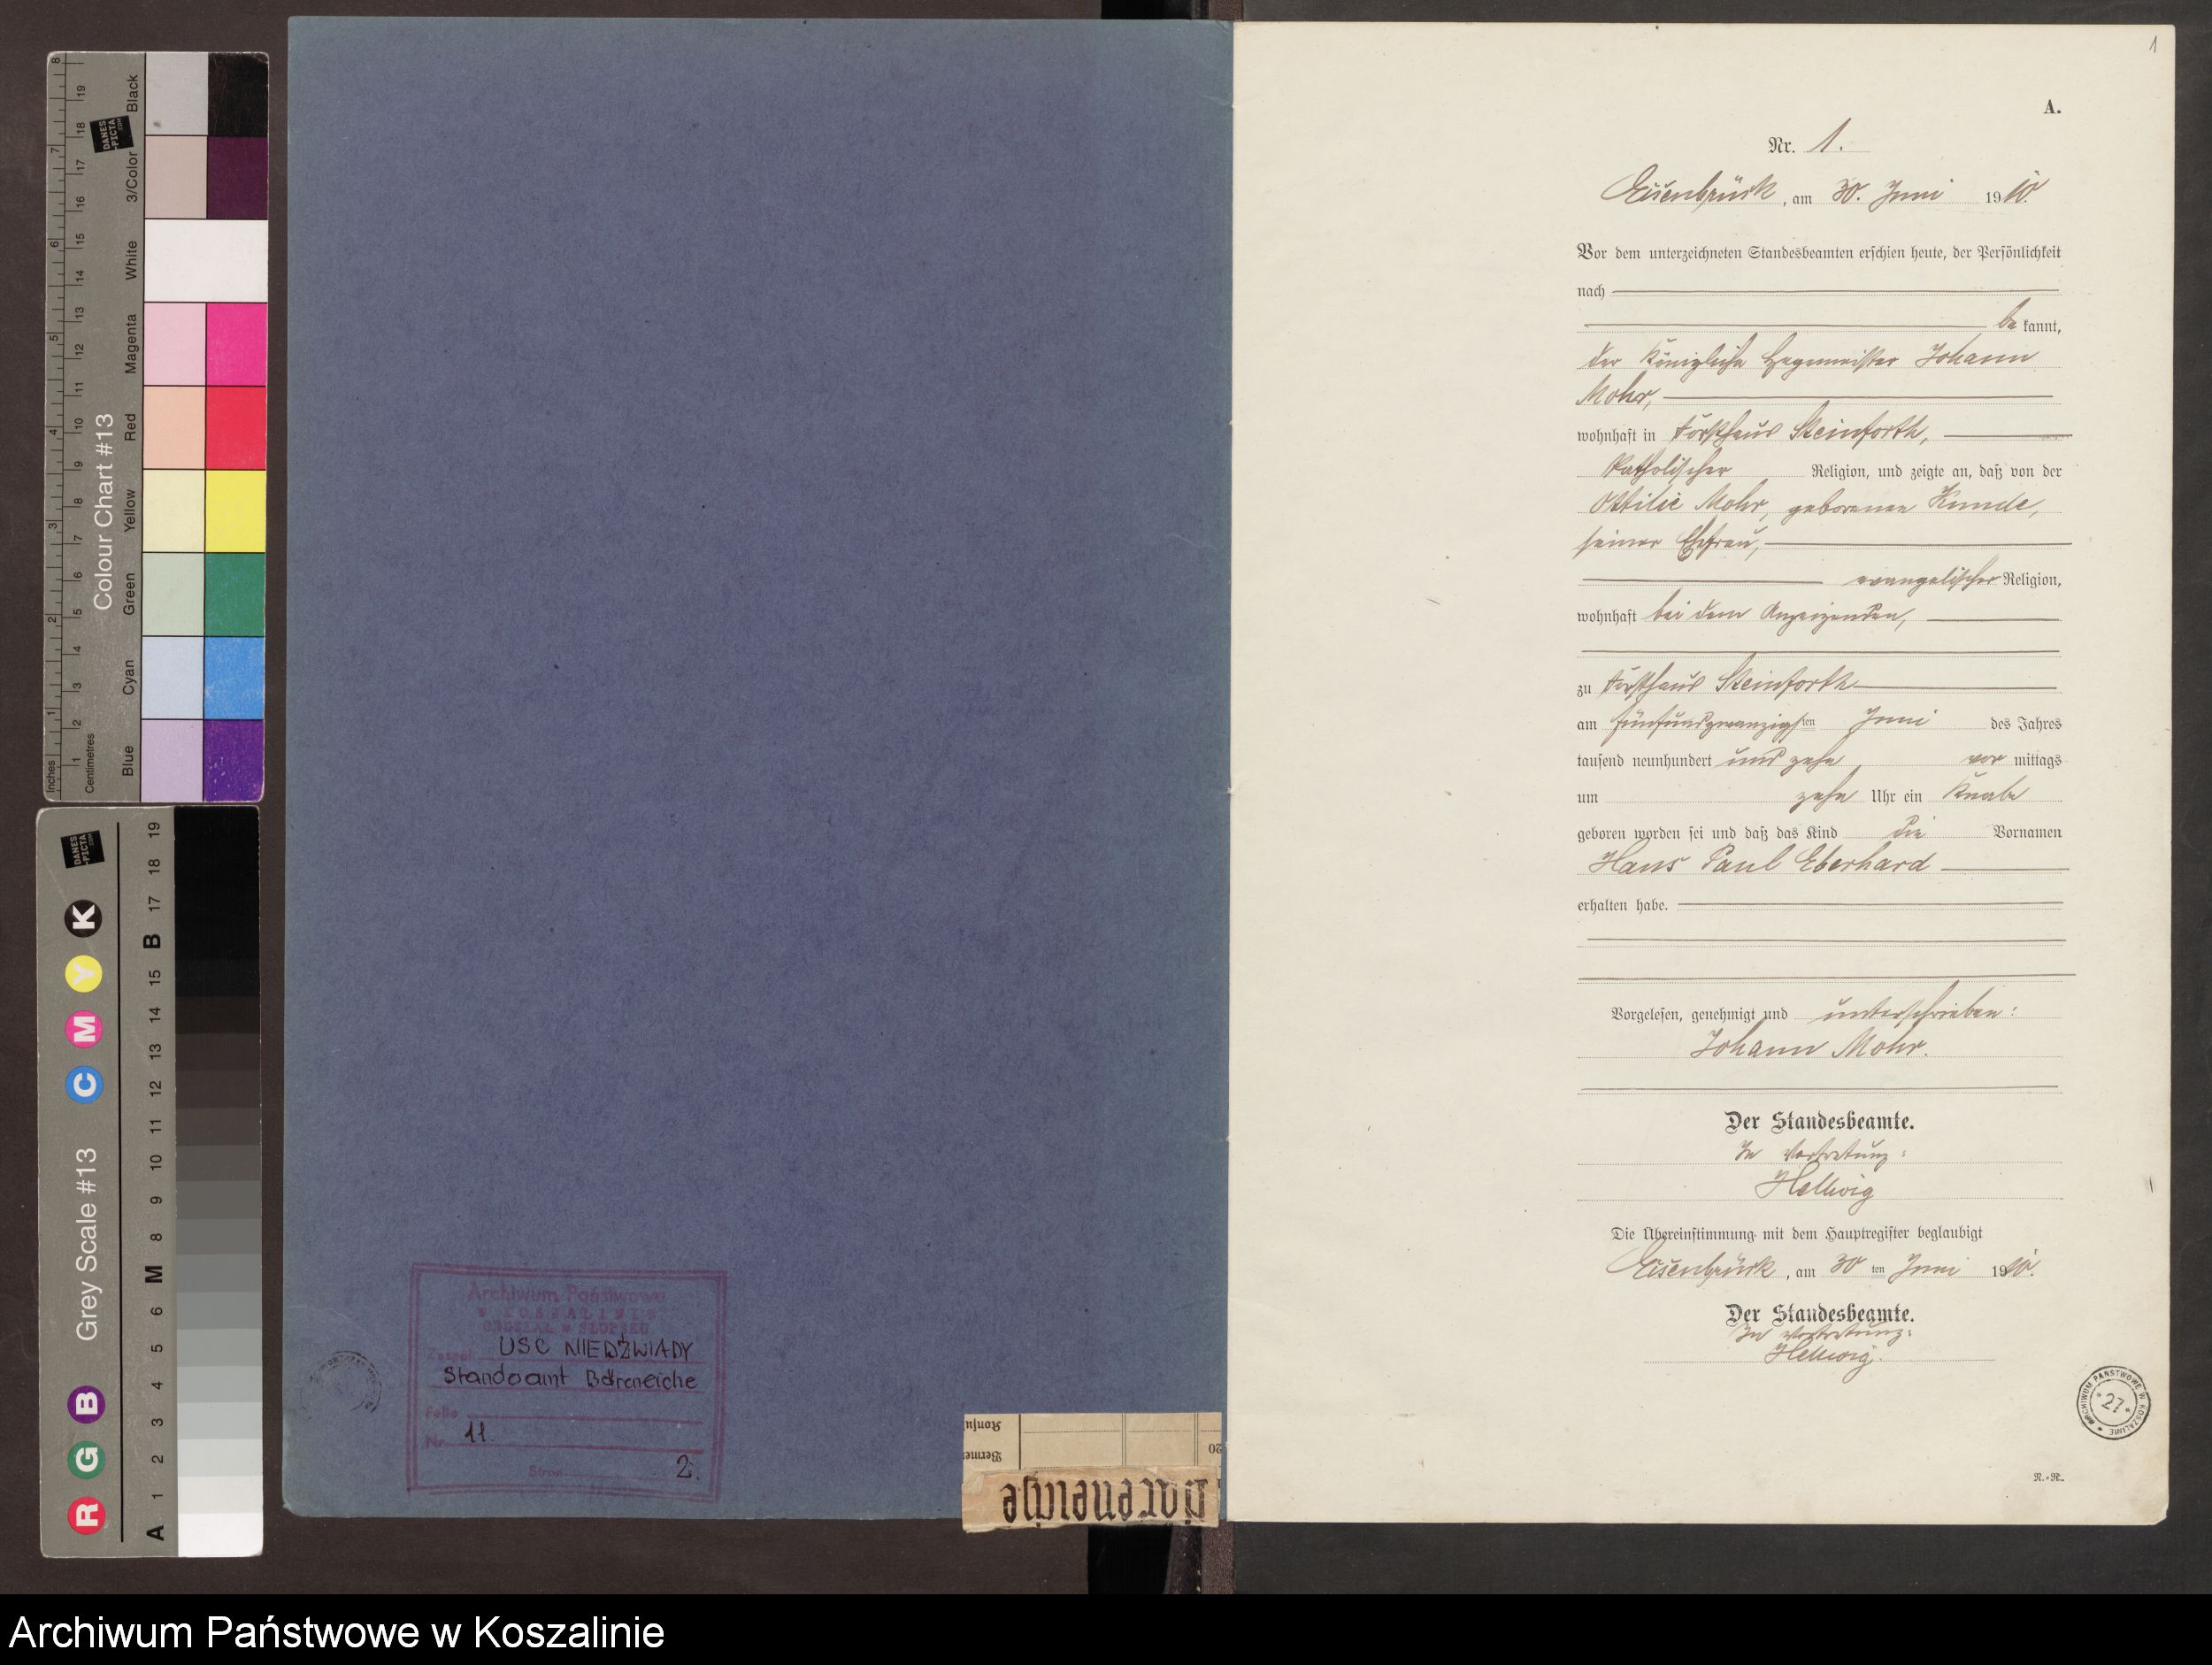 Archiwum Państwowe
W KOSZALINIE
ODDZIAŁ w SŁUPSKU
Zespół USC NIEDŹWIADY
Standesamt Bäreneiche
Nr 11
Stron 2.
Bäreneiche
1
A.
Nr. 1.
Eisenbrück, am 30. Juni 1910.
Vor dem unterzeichneten Standesbeamten erschien heute, der Persönlichkeit
nach
be kannt,
der Königliche Hegemeister Johann
Mohr,
wohnhaft in Forsthaus Steinforth,
katholischer Religion, und zeigte an, daß von der
Ottilie Mohr, geborenen Kunde,
seiner Ehefrau,
evangelischer Religion,
wohnhaft bei dem Anzeigenden,
zu Forsthaus Steinforth
am fünfundzwanzigsten Juni des Jahres
tausend neunhundert und zehn vor mittags
um zehn Uhr ein Knabe
geboren worden sei und daß das Kind die Vornamen
Hans Paul Eberhard
erhalten habe.
Vorgelesen, genehmigt und unterschrieben:
Johann Mohr.
Der Standesbeamte.
In Vertretung:
Hellwig
Die Übereinstimmung mit dem Hauptregister beglaubigt
Eisenbrück, am 30 ten Juni 1910.
Der Standesbeamte.
In Vertretung:
Hellwig.
ARCHIWUM PAŃSTWOWE W KOSZALINIE
* 27 *
R.-R.
Colour Chart #13
Inches
Centimetres
Blue Cyan Green Yellow Red Magenta White 3/Color Black
DANES
-PICTA
.COM
Grey Scale #13
R G B C M Y K
A 1 2 3 4 5 6 M 8 9 10 11 12 13 14 15 B 17 18 19
Archiwum Państwowe w Koszalinie